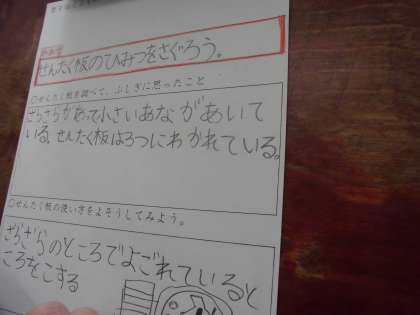 せんたく板のひみつをさぐろう。
○せんたく板を調べて、ふしぎに思ったこと
ざらざらがあって小さいあながあいて
いる。せんたく板は3つにわかれている。
○せんたく板の使い方をよそうしてみよう。
ざらざらのところでよごれていると
ころをこする